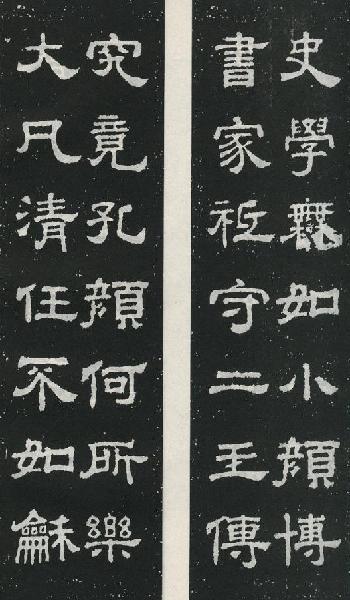 史學無如小顏博
書家祗守二王傳
究竟孔顏何所樂
大凡清任不如龢